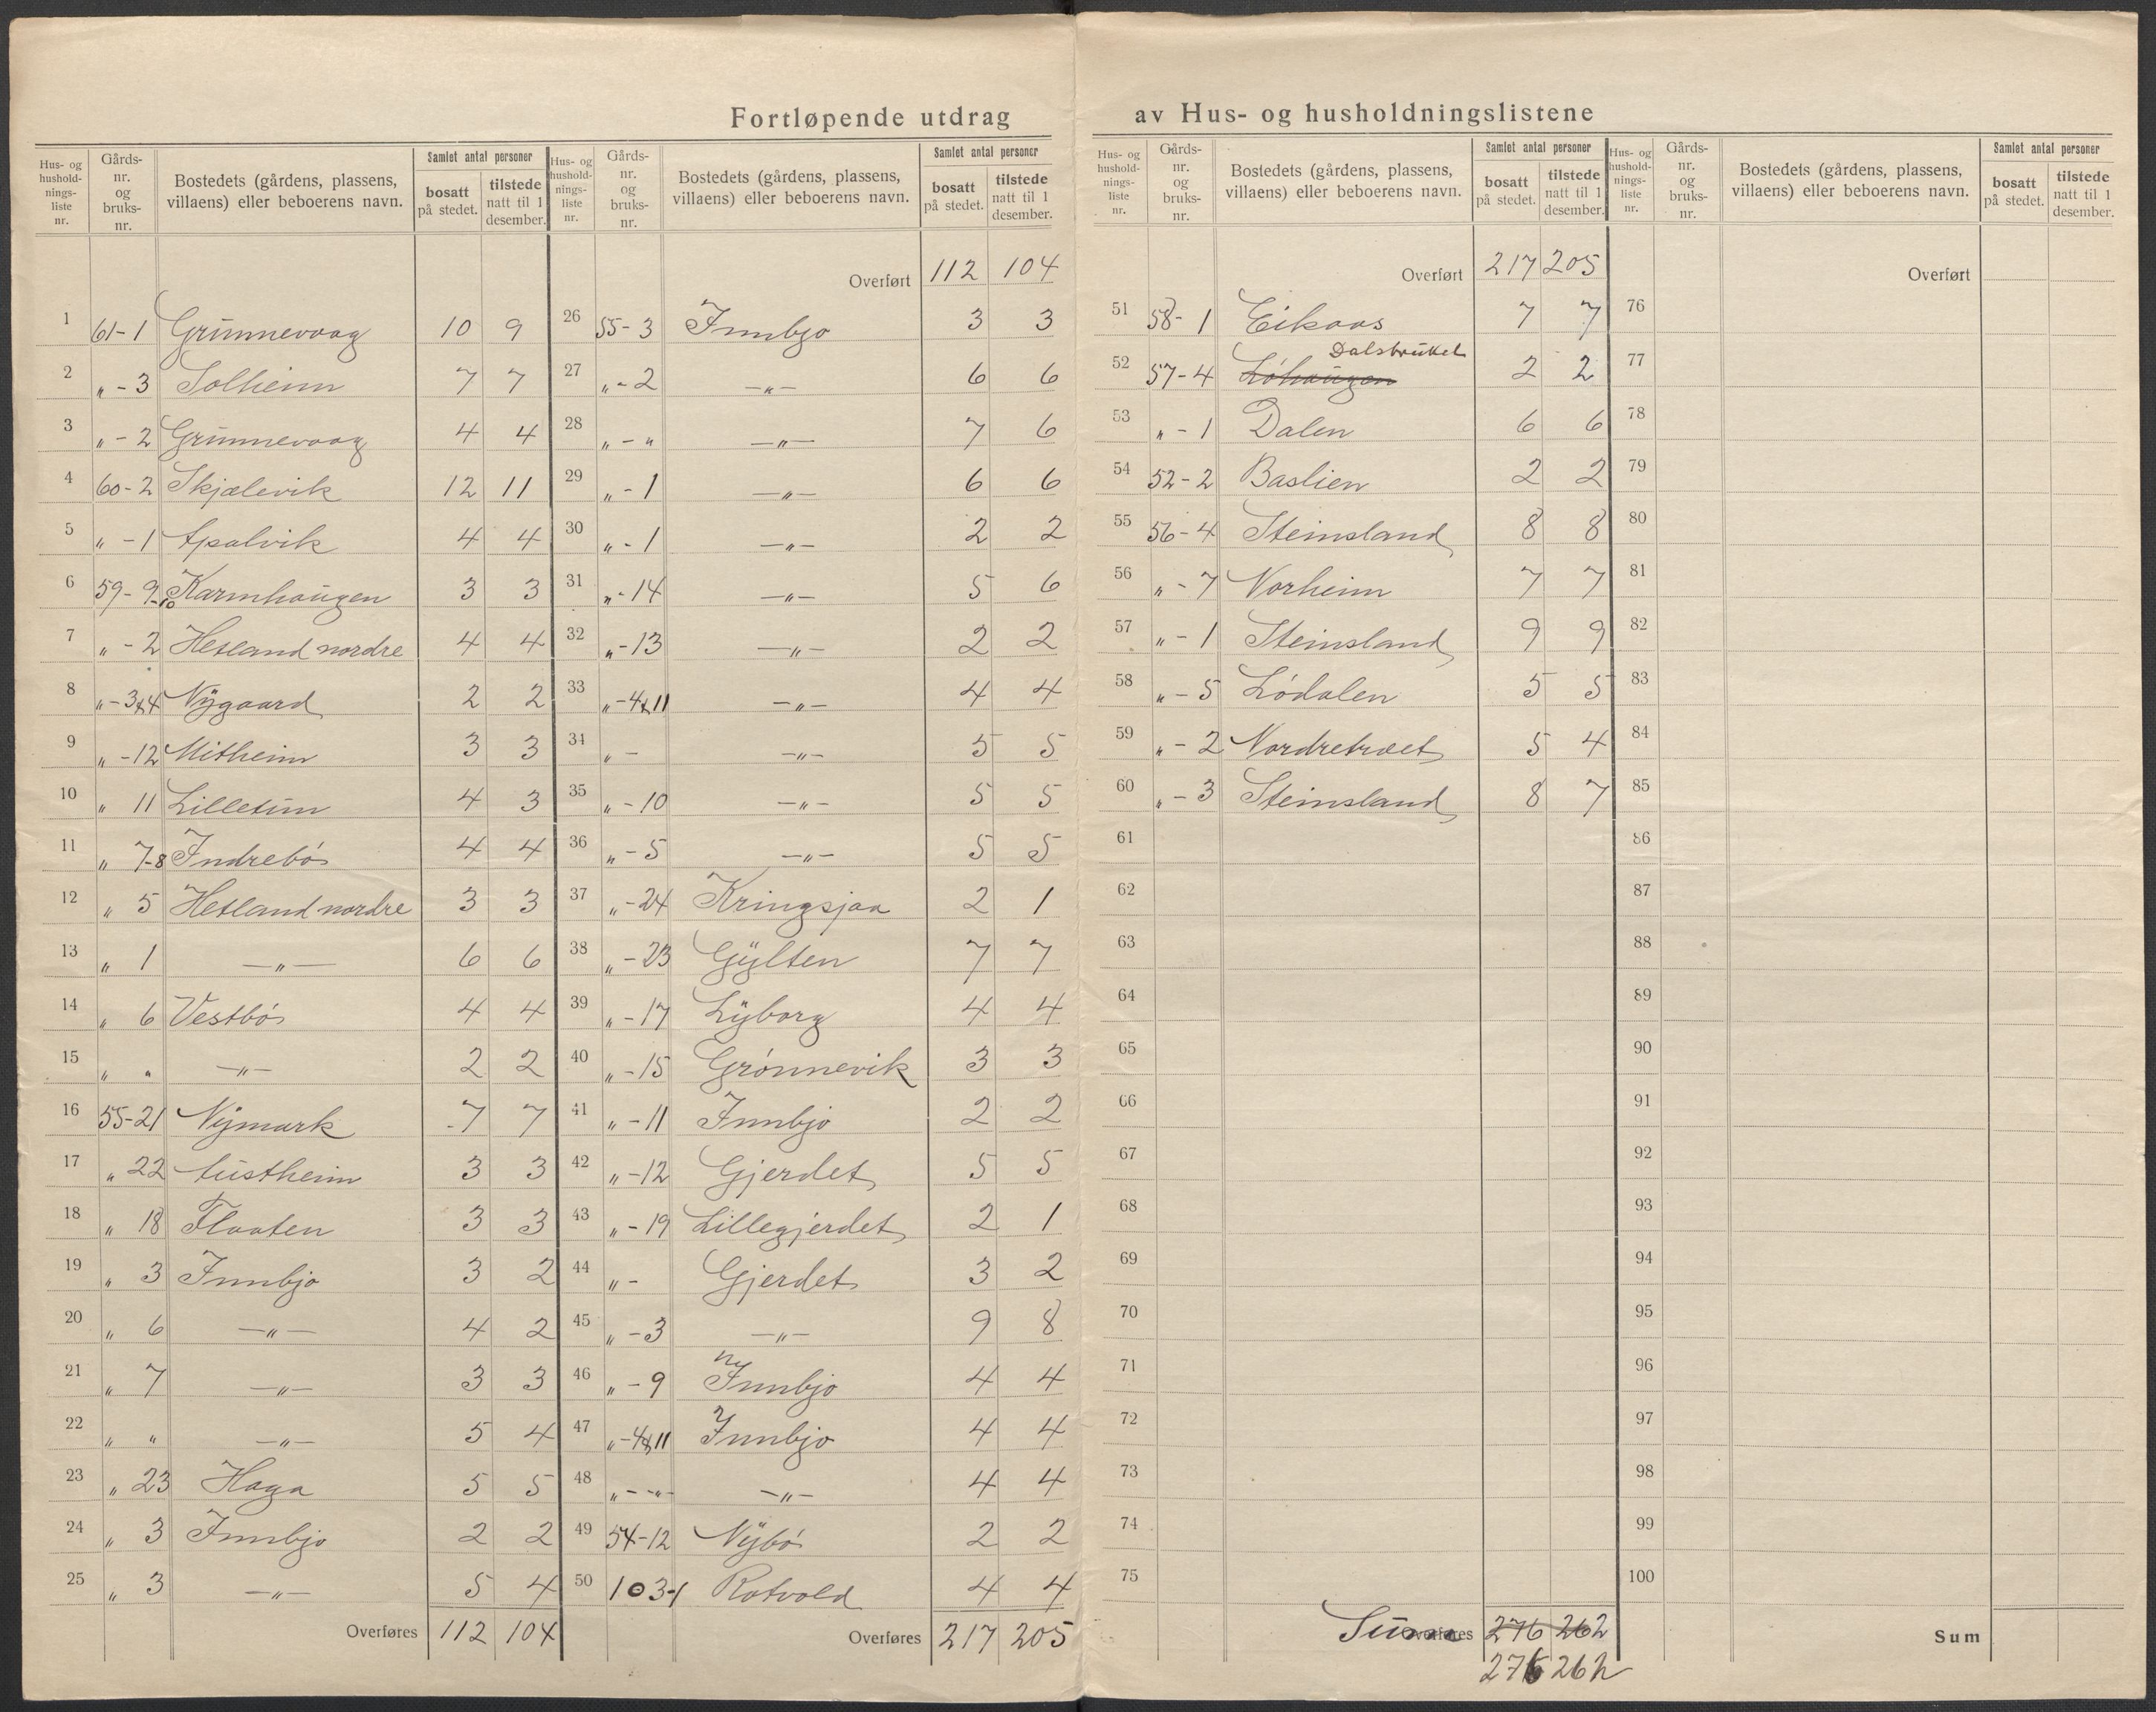 Fortløpende utdrag av Hus- og husholdningslistene
Hus- og hushold- nings- liste nr. | Gårds- nr. og bruks- nr. | Bostedets (gårdens, plassens, villaens) eller beboerens navn. | Samlet antal personer | bosatt på stedet. | tilstede natt til 1 desember.
1 61-1 Grunnevaag 10 9
2 „ - 3 Solheim 7 7
3 „ - 2 Grunnevaag 4 4
4 60-2 Skjælevik 12 11
5 „ - 1 Apalvik 4 4
6 59-9-10 Karmhaugen 3 3
7 „ - 2 Hetland nordre 4 4
8 „ - 3&4 Nygaard 2 2
9 „ - 12 Mitheim 3 3
10 „ 11 Lilletun 4 3
11 „ 7-8 Indrebø 4 4
12 „ 5 Hetland nordre 3 3
13 „ 1 — „ — 6 6
14 „ 6 Vestbø 4 4
15 „ „ — „ — 2 2
16 55-21 Nymark 7 7
17 „ 22 Austheim 3 3
18 „ 18 Flaaten 3 3
19 „ 3 Innbjo 3 2
20 „ 6 — „ — 4 2
21 „ 7 — „ — 3 3
22 „ „ — „ — 5 4
23 „ 23 Haga 5 5
24 „ 3 Innbjo 2 2
25 „ 3 — „ — 5 4
Overføres 112 104
Hus- og hushold- nings- liste nr. | Gårds- nr. og bruks- nr. | Bostedets (gårdens, plassens, villaens) eller beboerens navn. | Samlet antal personer | bosatt på stedet. | tilstede natt til 1 desember.
Overført 112 104
26 55-3 Innbjo 3 3
27 „ - 2 — „ — 6 6
28 „ - „ — „ — 7 6
29 „ - 1 — „ — 6 6
30 „ - 1 — „ — 2 2
31 „ - 14 — „ — 5 6
32 „ - 13 — „ — 2 2
33 „ - 4&11 — „ — 4 4
34 „ - — „ — 5 5
35 „ - 10 — „ — 5 5
36 „ - 5 — „ — 5 5
37 „ - 24 Kringsjaa 2 1
38 „ - 23 Gylten 7 7
39 „ - 17 Lyborg 4 4
40 „ - 15 Grønnevik 3 3
41 „ - 11 Innbjo 2 2
42 „ - 12 Gjerdet 5 5
43 „ - 19 Lillegjerdet 2 1
44 „ - Gjerdet 3 2
45 „ - 3 — „ — 9 8
46 „ - 9 Innbjo 4 4
47 „ - 4&11 Innbjo 4 4
48 „ - - „ - — „ — 4 4
49 54-12 Nybø 2 2
50 103-1 Rotvold 4 4
Overføres 217 205
Hus- og hushold- nings- liste nr. | Gårds- nr. og bruks- nr. | Bostedets (gårdens, plassens, villaens) eller beboerens navn. | Samlet antal personer | bosatt på stedet. | tilstede natt til 1 desember.
Overført 217 205
51 58-1 Eikaas 7 7
Dalsbruket
52 57-4 Løhaugen 2 2
53 „ - 1 Dalen 6 6
54 52-2 Baslien 2 2
55 56-4 Steinsland 8 8
56 „ - 7 Norheim 7 7
57 „ - 1 Steinsland 9 9
58 „ - 5 Lødalen 5 5
59 „ - 2 Nordretræet 5 4
60 „ - 3 Steinsland 8 7
61
62
63
64
65
66
67
68
69
70
71
72
73
74
75
Overføres Summa 276 262
276 262
Hus- og hushold- nings- liste nr. | Gårds- nr. og bruks- nr. | Bostedets (gårdens, plassens, villaens) eller beboerens navn. | Samlet antal personer | bosatt på stedet. | tilstede natt til 1 desember.
Overført
76
77
78
79
80
81
82
83
84
85
86
87
88
89
90
91
92
93
94
95
96
97
98
99
100
Sum